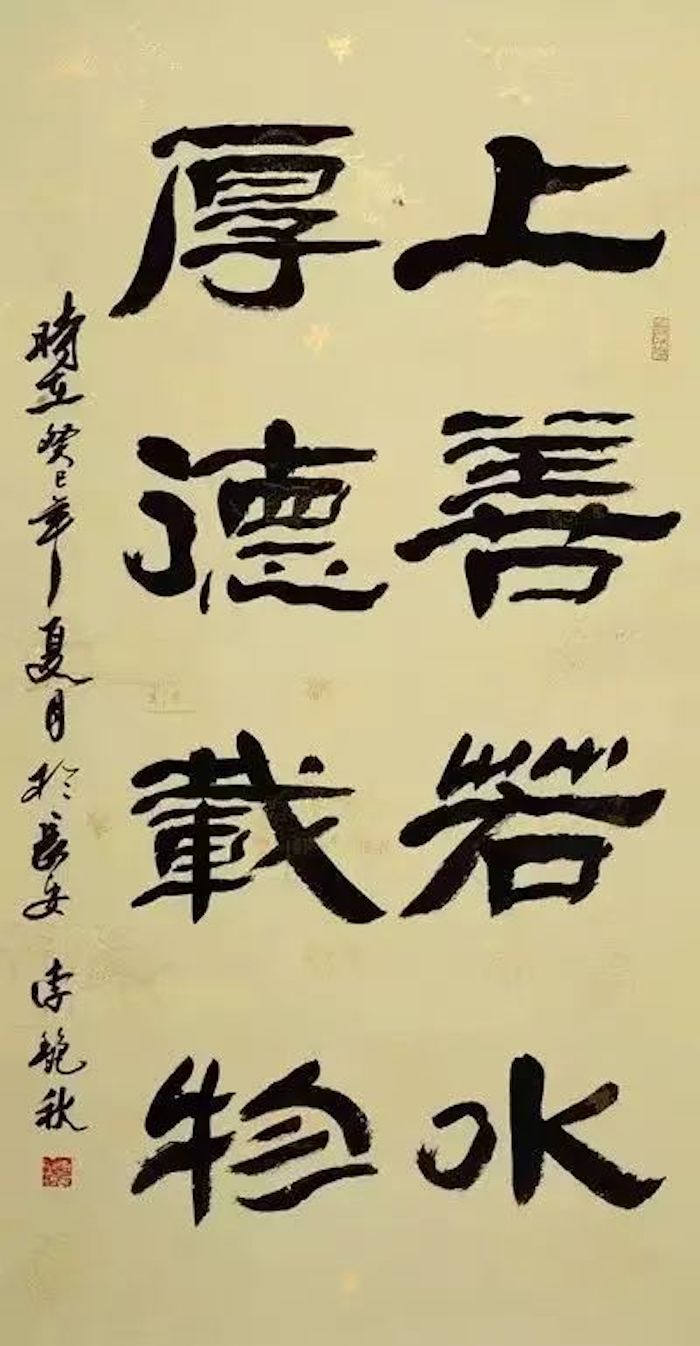 上善若水
厚德載物
時在癸巳年夏月於長安 李艳秋